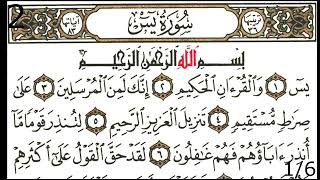 2
سُورَةُ يسٓ
بِسْمِ اللَّهِ الرَّحْمَٰنِ الرَّحِيمِ
يسٓ ١ وَالْقُرْءَانِ الْحَكِيمِ ٢ إِنَّكَ لَمِنَ الْمُرْسَلِينَ ٣ عَلَىٰ
صِرَٰطٍ مُّسْتَقِيمٍ ٤ تَنزِيلَ الْعَزِيزِ الرَّحِيمِ ٥ لِتُنذِرَ قَوْمًا مَّا
أُنذِرَ ءَابَآؤُهُمْ فَهُمْ غَٰفِلُونَ ٦ لَقَدْ حَقَّ الْقَوْلُ عَلَىٰٓ أَكْثَرِهِمْ
1/6